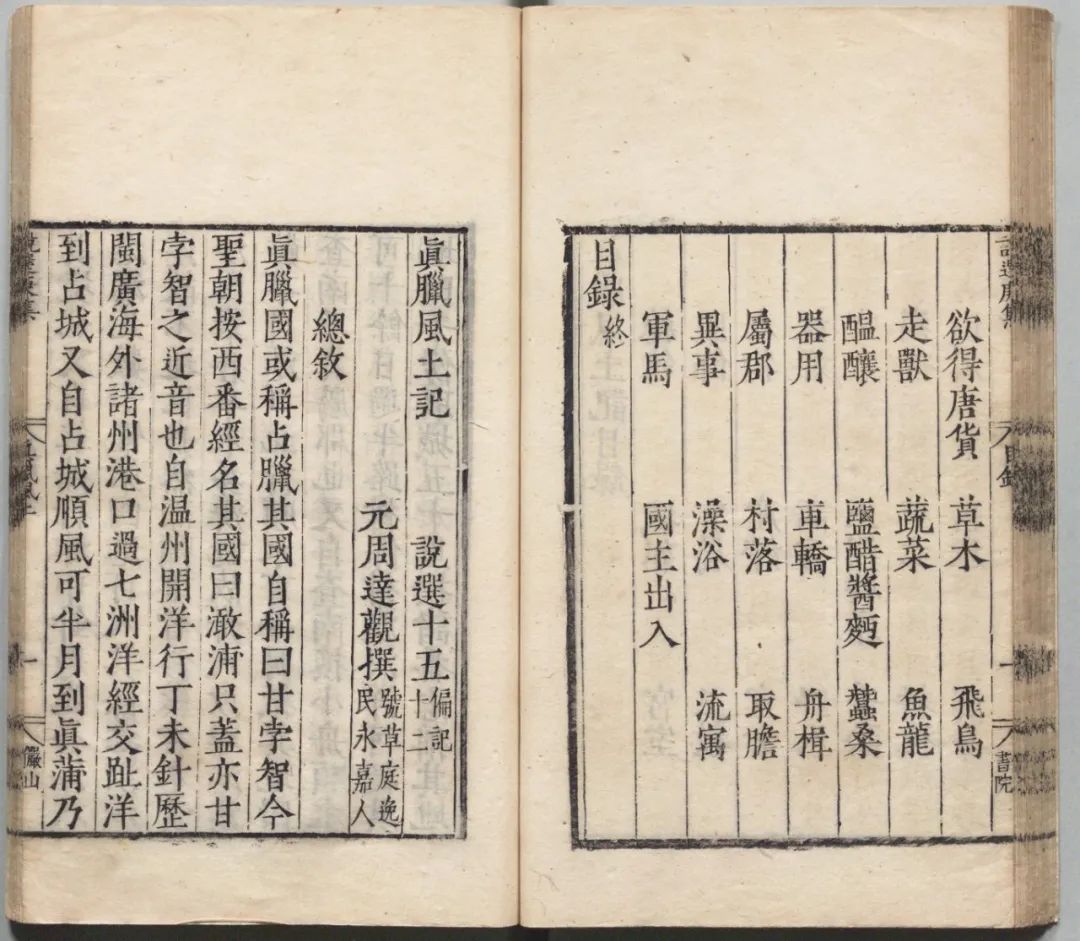 目錄 一 書院
欲得唐貨 草木 飛鳥
走獸 蔬菜 魚龍
醖釀 鹽醋醬麪 蠶桑
器用 車轎 舟楫
屬郡 村落 取膽
異事 澡浴 流寓
軍馬 國主出入
目錄終
眞臘風土記 說選十五 偏記十二
元周達觀撰 號草庭逸民永嘉人
總敘
眞臘國或稱占臘其國自稱曰甘孛智今
聖朝按西番經名其國曰澉浦只蓋亦甘
孛智之近音也自温州開洋行丁未針歷
閩廣海外諸州港口過七洲洋經交趾洋
到占城又自占城順風可半月到眞蒲乃
一 儼山